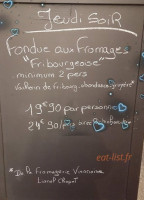 Jeudi Soir
Fondue aux Fromages
"Fribourgeoise"
minimum 2 pers
Vacherin de fribourg, abondance, gruyère*
19€90 par personne
24€90 / pers avec
eat-list.fr
* De la fromagerie Vinnoise
Lionel